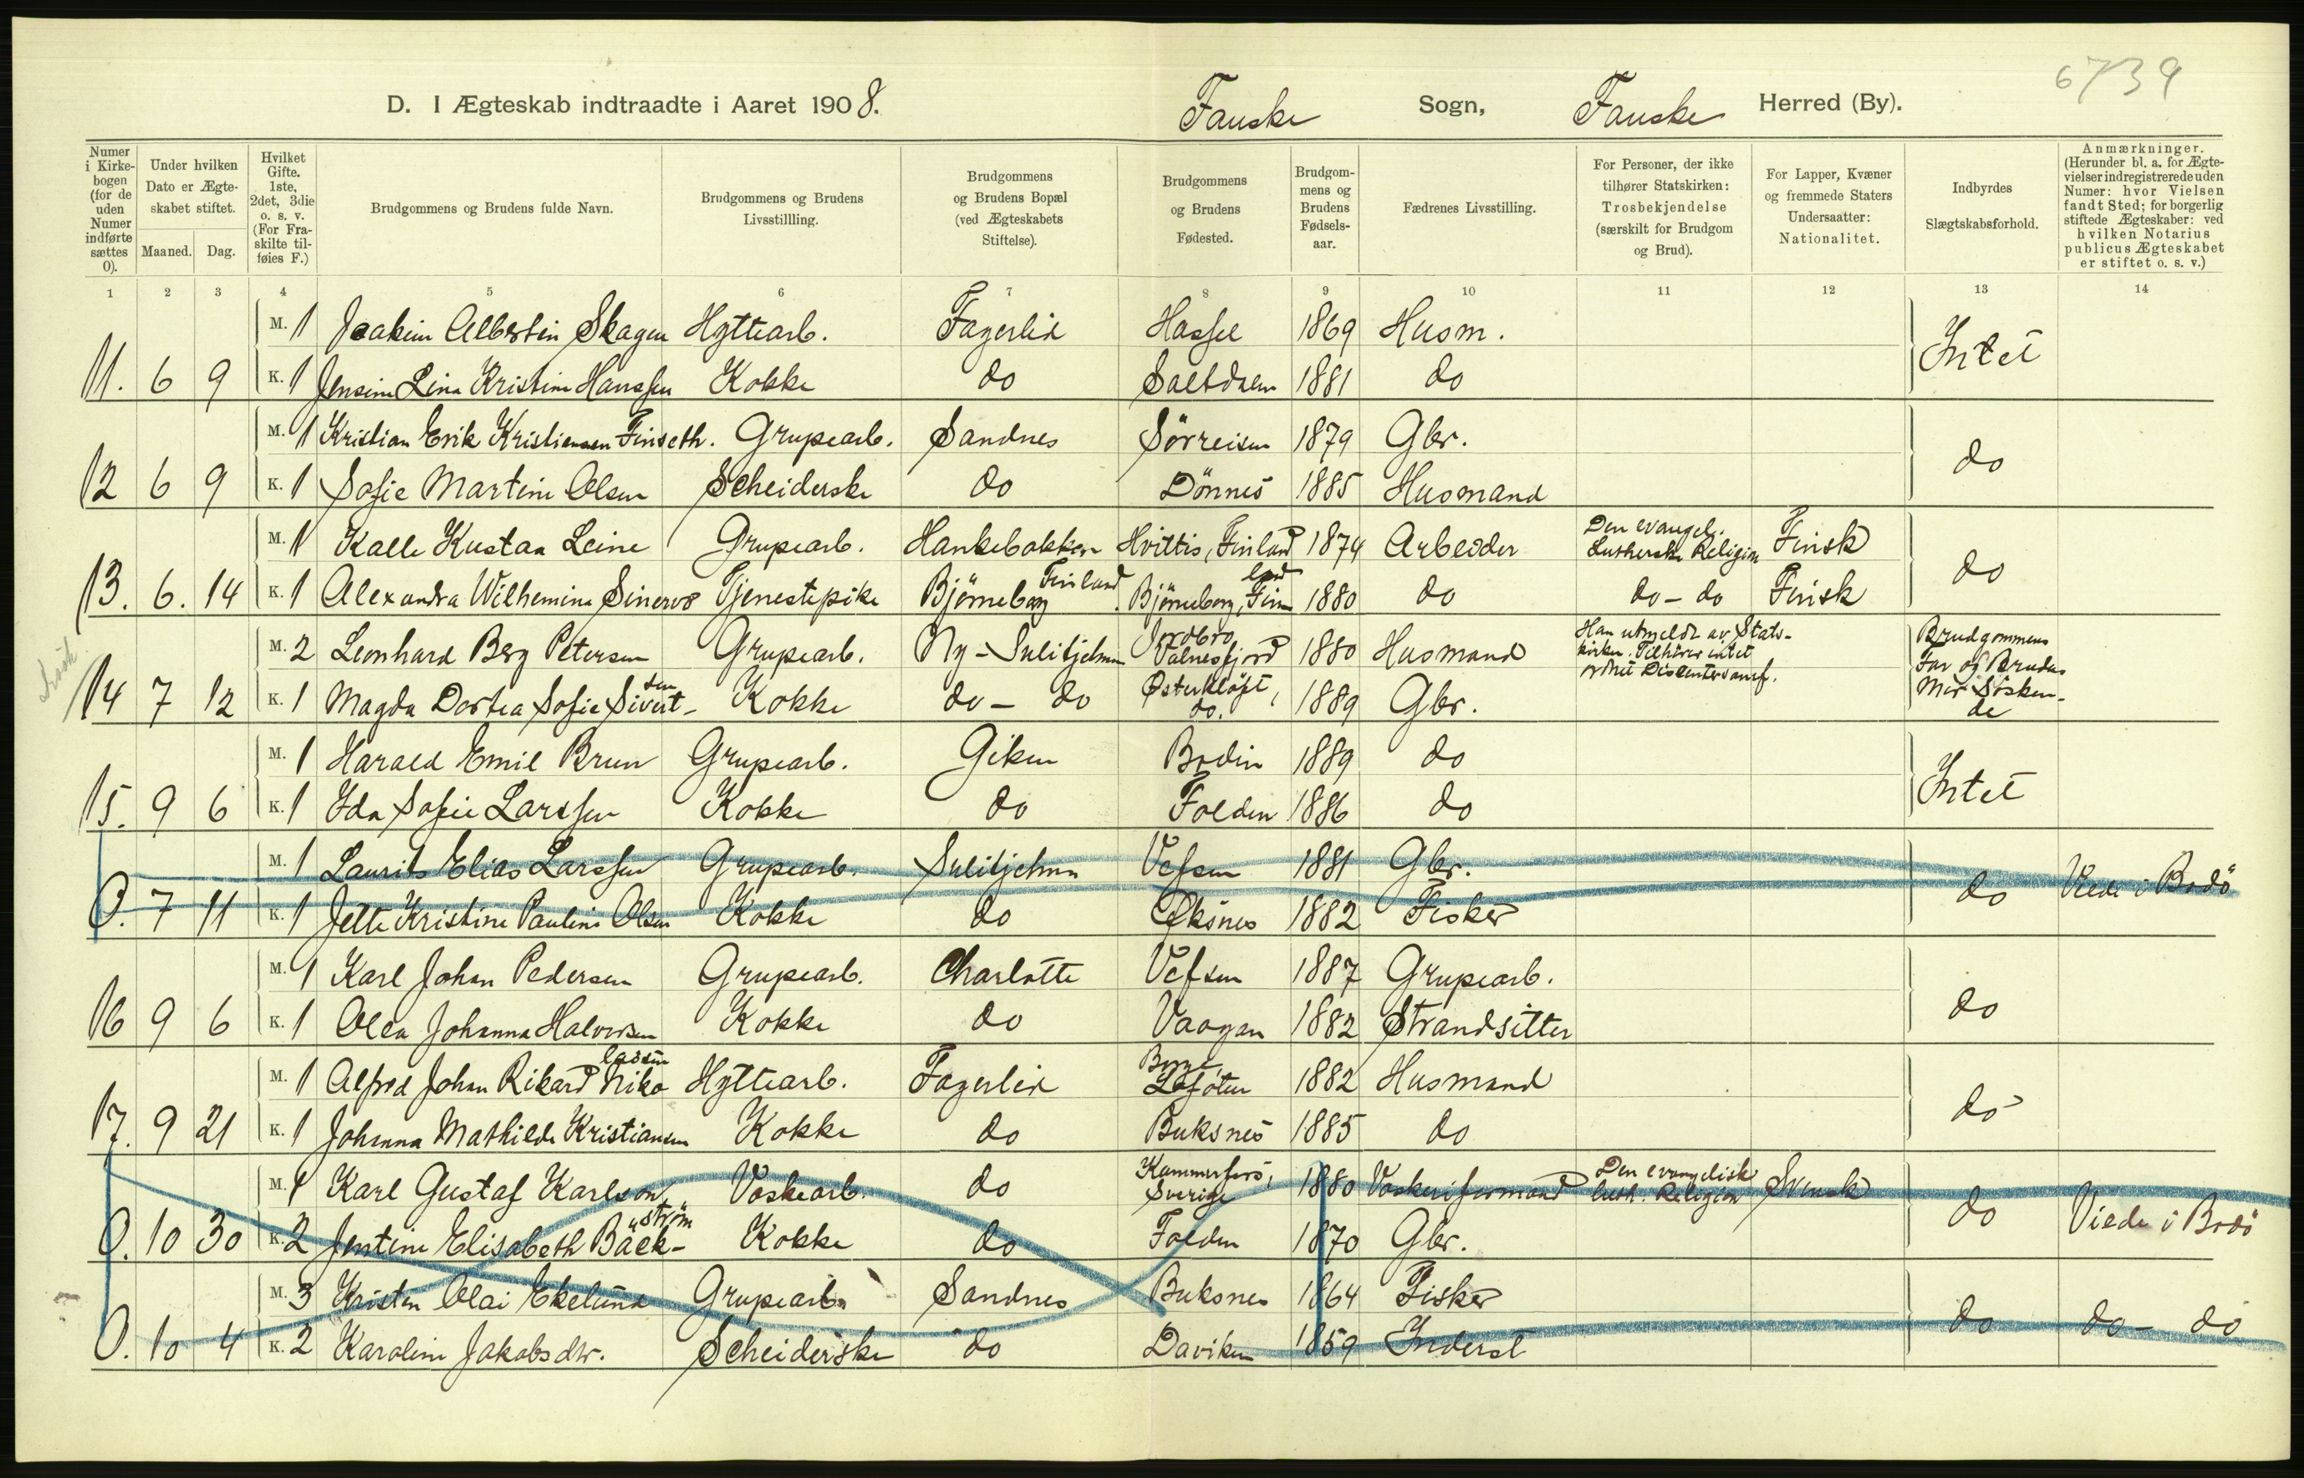 6739
D. I Ægteskab indtraadte i Aaret 1908. Fauske Sogn, Fauske Herred (By).
Numer i Kirkebogen (for de uden Numer indførte sættes 0).
Under hvilken Dato er Ægteskabet stiftet. Maaned. Dag.
Hvilket Gifte. 1ste, 2det, 3die o. s. v. (For Fraskilte tilføies F.)
Brudgommens og Brudens fulde Navn.
Brudgommens og Brudens Livsstillling.
Brudgommens og Brudens Bopæl (ved Ægteskabets Stiftelse).
Brudgommens og Brudens Fødested.
Brudgommens og Brudens Fødselsaar.
Fædrenes Livsstilling.
For Personer, der ikke tilhører Statskirken: Trosbekjendelse (særskilt for Brudgom og Brud).
For Lapper, Kvæner og fremmede Staters Undersaatter: Nationalitet.
Indbyrdes Slægtskabsforhold.
Anmærkninger. (Herunder bl. a. for Ægtevielser indregistrerede uden Numer: hvor Vielsen fandt Sted; for borgerlig stiftede Ægteskaber: ved hvilken Notarius publicus Ægteskabet er stiftet o. s. v.)
1 2 3 4 5 6 7 8 9 10 11 12 13 14
M. 1 Joakim Albertin Skagen Hyttearb. Fagerlid Hassel 1869 Husm. Intet
11. 6 9 K. 1 Jensine Lina Kristine Hanssen Kokke do Saltdalen 1881 do
M. 1 Kristian Erik Kristiansen Finseth. Grupearb. Sandnes Sörreisen 1879 Gbr. do
12 6 9 K. 1 Sofie Martine Olsen Scheiderske do Dönnes 1885 Husmand
M. 1 Kalle Kustaa Leine Grupearb. Hankabakken Hvittis, Finland 1874 Arbeider Den evangel. Lutherske Religion Finsk do
13. 6. 14 K. 1 Alexandra Wilhemina Sinervo Tjenestepike Björneborg Finland Björneborg, Finland 1880 do do - do Finsk
M. 2 Leonhard Berg Petersen Grupearb. Ny-Sulitjelma Jordbro Valnesfjord 1880 Husmand Han utmeldt av Statskirken. Tilhører intet ordnet Dissentersamf. Brudgommens Far og Brudens Mor Søskende
14 7 12 K. 1 Magda Dortea Sofie Sivertsen Kokke do - do Østerkløft, do. 1889 Gbr.
M. 1 Harald Emil Brun Grupearb. Giken Bodin 1889 do Intet
15. 9 6 K. 1 Ida Sofie Larssen Kokke do Folden 1886 do
M. 1 Laurits Elias Larssen Grupearb. Sulitjelma Vefsen 1881 Gbr. do Viede i Bodö
0. 7 11 K. 1 Jette Kristine Pauline Olsen Kokke do Øksnes 1882 Fisker
M. 1 Karl Johan Pedersen Grupearb. Charlotte Vefsen 1887 Grupearb. do
16 9 6 K. 1 Olea Johanna Halvorsen Kokke do Vaagan 1882 Strandsitter
M. 1 Alfred Johan Rikard Nikolaisen Hyttearb. Fagerlid Borge, Lofoten 1882 Husmand do
17. 9 21 K. 1 Johanna Mathilde Kristiansen Kokke do Buksnes 1885 do
M. 1 Karl Gustaf Karlson Vaskearb. do Sverige 1880 Vaskeriformand Den evangelisk luth. Religion Svensk do Viede i Bodö
0. 10 30 K. 2 Jentine Elisabeth Bäckström Kokke do Folden 1870 Gbr.
M. 3 Kristen Olai Ekelund Grupearb. Sandnes Buksnes 1864 Fisker do do - do
0. 10 4 K. 2 Karoline Jakobsdtr. Scheiderske do Daviken 1859 Inderst